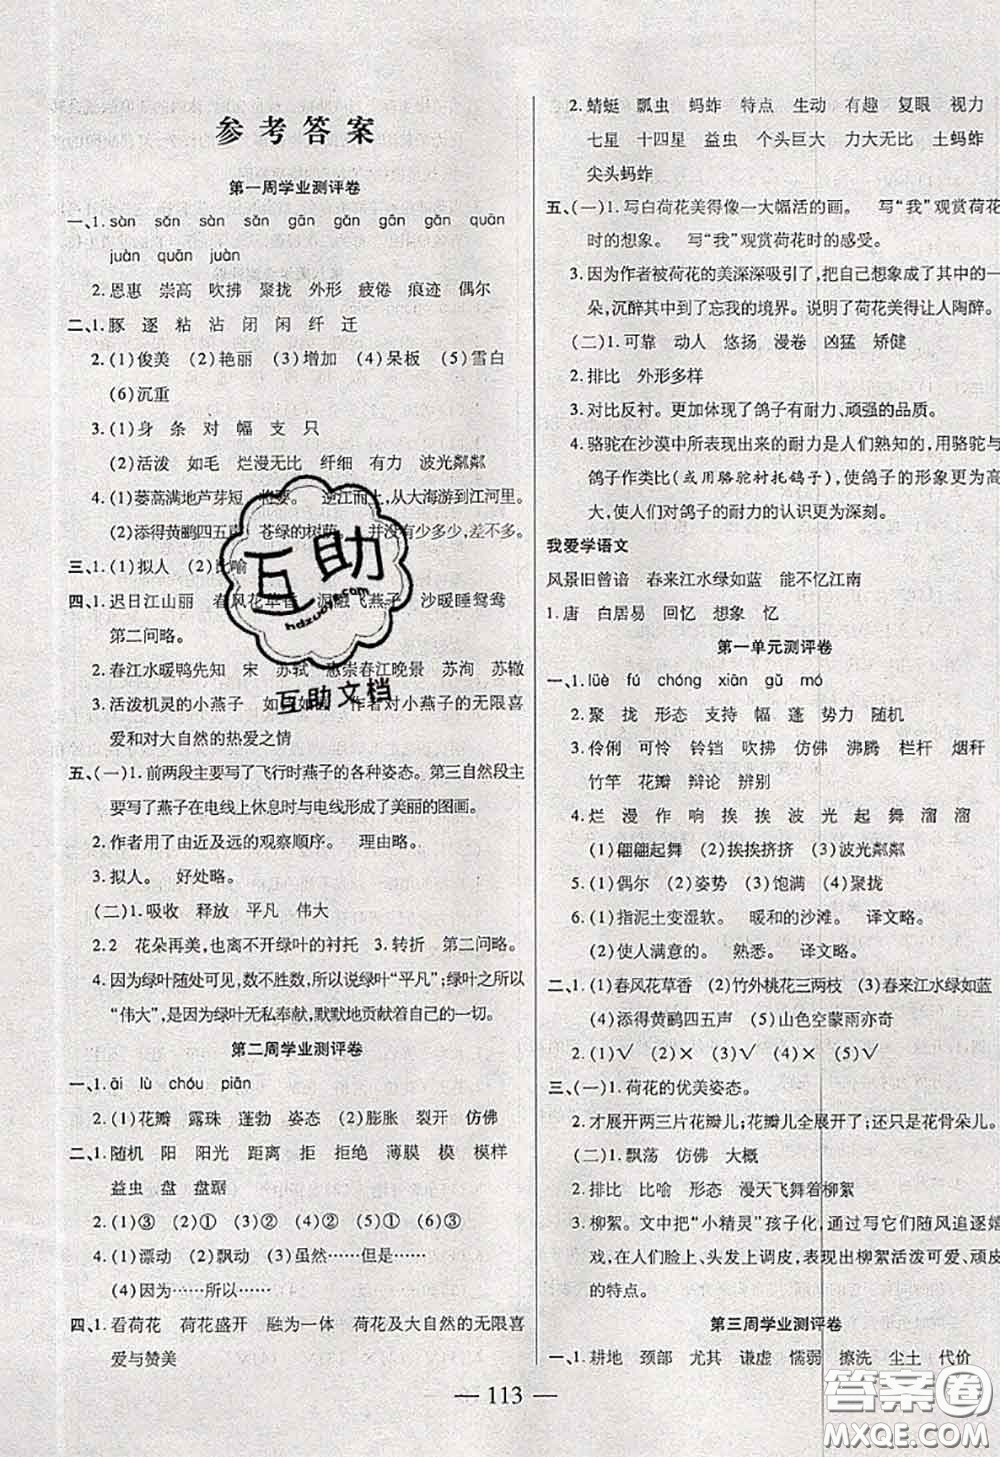 参考答案
第一周学业测评卷
一、1. sàn sǎn sàn sǎn gān gǎn gǎn gān quān
juàn quān juàn
2. 恩惠 崇高 吹拂 聚拢 外形 疲倦 痕迹 偶尔
二、1. 豚 逐 粘 沾 闭 闲 纤 迁
2. (1)俊美 (2)艳丽 (3)增加 (4)呆板 (5)雪白
(6)沉重
3. (1)身 条 对 幅 支 只
(2)活泼 如毛 烂漫无比 纤细 有力 波光粼粼
4. (1)蒌蒿满地芦芽短 逆江而上,从大海游到江河里。
(2)添得黄鹂四五声 苍绿的树荫。 并没有少多少,差不多。
三、1. (1)拟人 (2)比喻
四、1. 迟日江山丽 春风花草香 泥融飞燕子 沙暖睡鸳鸯
第二问略。
2. 春江水暖鸭先知 宋 苏轼 惠崇春江晚景 苏洵 苏辙
3. 活泼机灵的小燕子 作者对小燕子的无限喜
爱和对大自然的热爱之情
五、(一)1. 前两段主要写了飞行时燕子的各种姿态。第三自然段主
要写了燕子在电线上休息时与电线形成了美丽的图画。
2. 作者用了由近及远的观察顺序。 理由略。
3. 拟人。 好处略。
(二)1. 吸收 释放 平凡 伟大
2. 2 花朵再美,也离不开绿叶的衬托 3. 转折 第二问略。
4. 因为绿叶随处可见,数不胜数,所以说绿叶“平凡”;绿叶之所以
“伟大”,是因为绿叶无私奉献,默默地付出自己的一切。
第二周学业测评卷
一、1. āi lù chóu piān
2. (1)花瓣 露珠 蓬勃 姿态 (2)膨胀 裂开 仿佛
二、1. 随机 阳 阳光 距离 拒 拒绝 薄膜 模 模样
益虫 盘 盘踞
2. (1)③ (2)① (3)② (4)② (5)① (6)③
4. (1)漂动 (2)飘动 (3)虽然……但是……
(4)因为……所以……
四、1. 看荷花 荷花盛开 融为一体 荷花及大自然的无限喜
爱与赞美
2. 蜻蜓 瓢虫 蚂蚱 特点 生动 有趣 复眼 视力
七星 十四星 益虫 个头巨大 力大无比 土蚂蚱
尖头蚂蚱
五、(一)1. 写白荷花美得像一大幅活的画。 写“我”观赏荷花
时的想象。 写“我”观赏荷花时的感受。
3. 因为作者被荷花的美深深吸引了,把自己想象成了其中的一
朵,沉醉其中到了忘我的境界。说明了荷花美得让人陶醉。
(二)1. 可靠 动人 悠扬 漫卷 凶猛 矫健
2. 排比 外形多样
3. 对比反衬。更加体现了鸽子有耐力、顽强的品质。
4. 骆驼在沙漠中所表现出来的耐力是人们熟知的,用骆驼与
鸽子作类比(或用骆驼衬托鸽子),使鸽子的形象更为高
大,使人们对鸽子的耐力的认识更为深刻。
我爱学语文
风景旧曾谙 春来江水绿如蓝 能不忆江南
1. 唐 白居易 回忆 想象 忆
第一单元测评卷
一、1. lüè fú chóng xiān gū mó
2. 聚 拢 形态 支持 幅 蓬 势力 随机
3. 伶俐 可怜 铃铛 吹拂 仿佛 沸腾 栏杆 烟秆
竹竿 花瓣 辩论 辨别
4. 烂 漫 作 响 挨 挨 波 光 起 舞 溜 溜
(1)翩翩起舞 (2)挨挨挤挤 (3)波光粼粼
5. (1)偶尔 (2)姿势 (3)饱满 (4)聚拢
6. (1)指泥土变湿软。 暖和的沙滩。 译文略。
(2)使人满意的。 熟悉。 译文略。
二、1. (1)春风花草香 (2)竹外桃花三两枝 (3)春来江水绿如蓝
(4)添得黄鹂四五声 (5)山色空蒙雨亦奇
2. (1)√ (2)× (3)√ (4)× (5)√
三、(一)1. 荷花的优美姿态。
2. 才展开两三片花瓣儿;花瓣儿全展开了;还是花骨朵儿。
(二)1. 飘荡 仿佛 大概
2. 排比 比喻 形态 漫天飞舞着柳絮
3. 柳絮。文中把“小精灵”孩子化,通过写它们随风追逐嬉
戏,在人们脸上、头发上调皮,表现出柳絮活泼可爱、顽皮
的特点。
第三周学业测评卷
一、1. 耕地 颈部 尤其 谦虚 懦弱 擦洗 尘土 代价
— 113 —
互助
hdzuoye.com
互助文档
答案圈
MXQE.COM